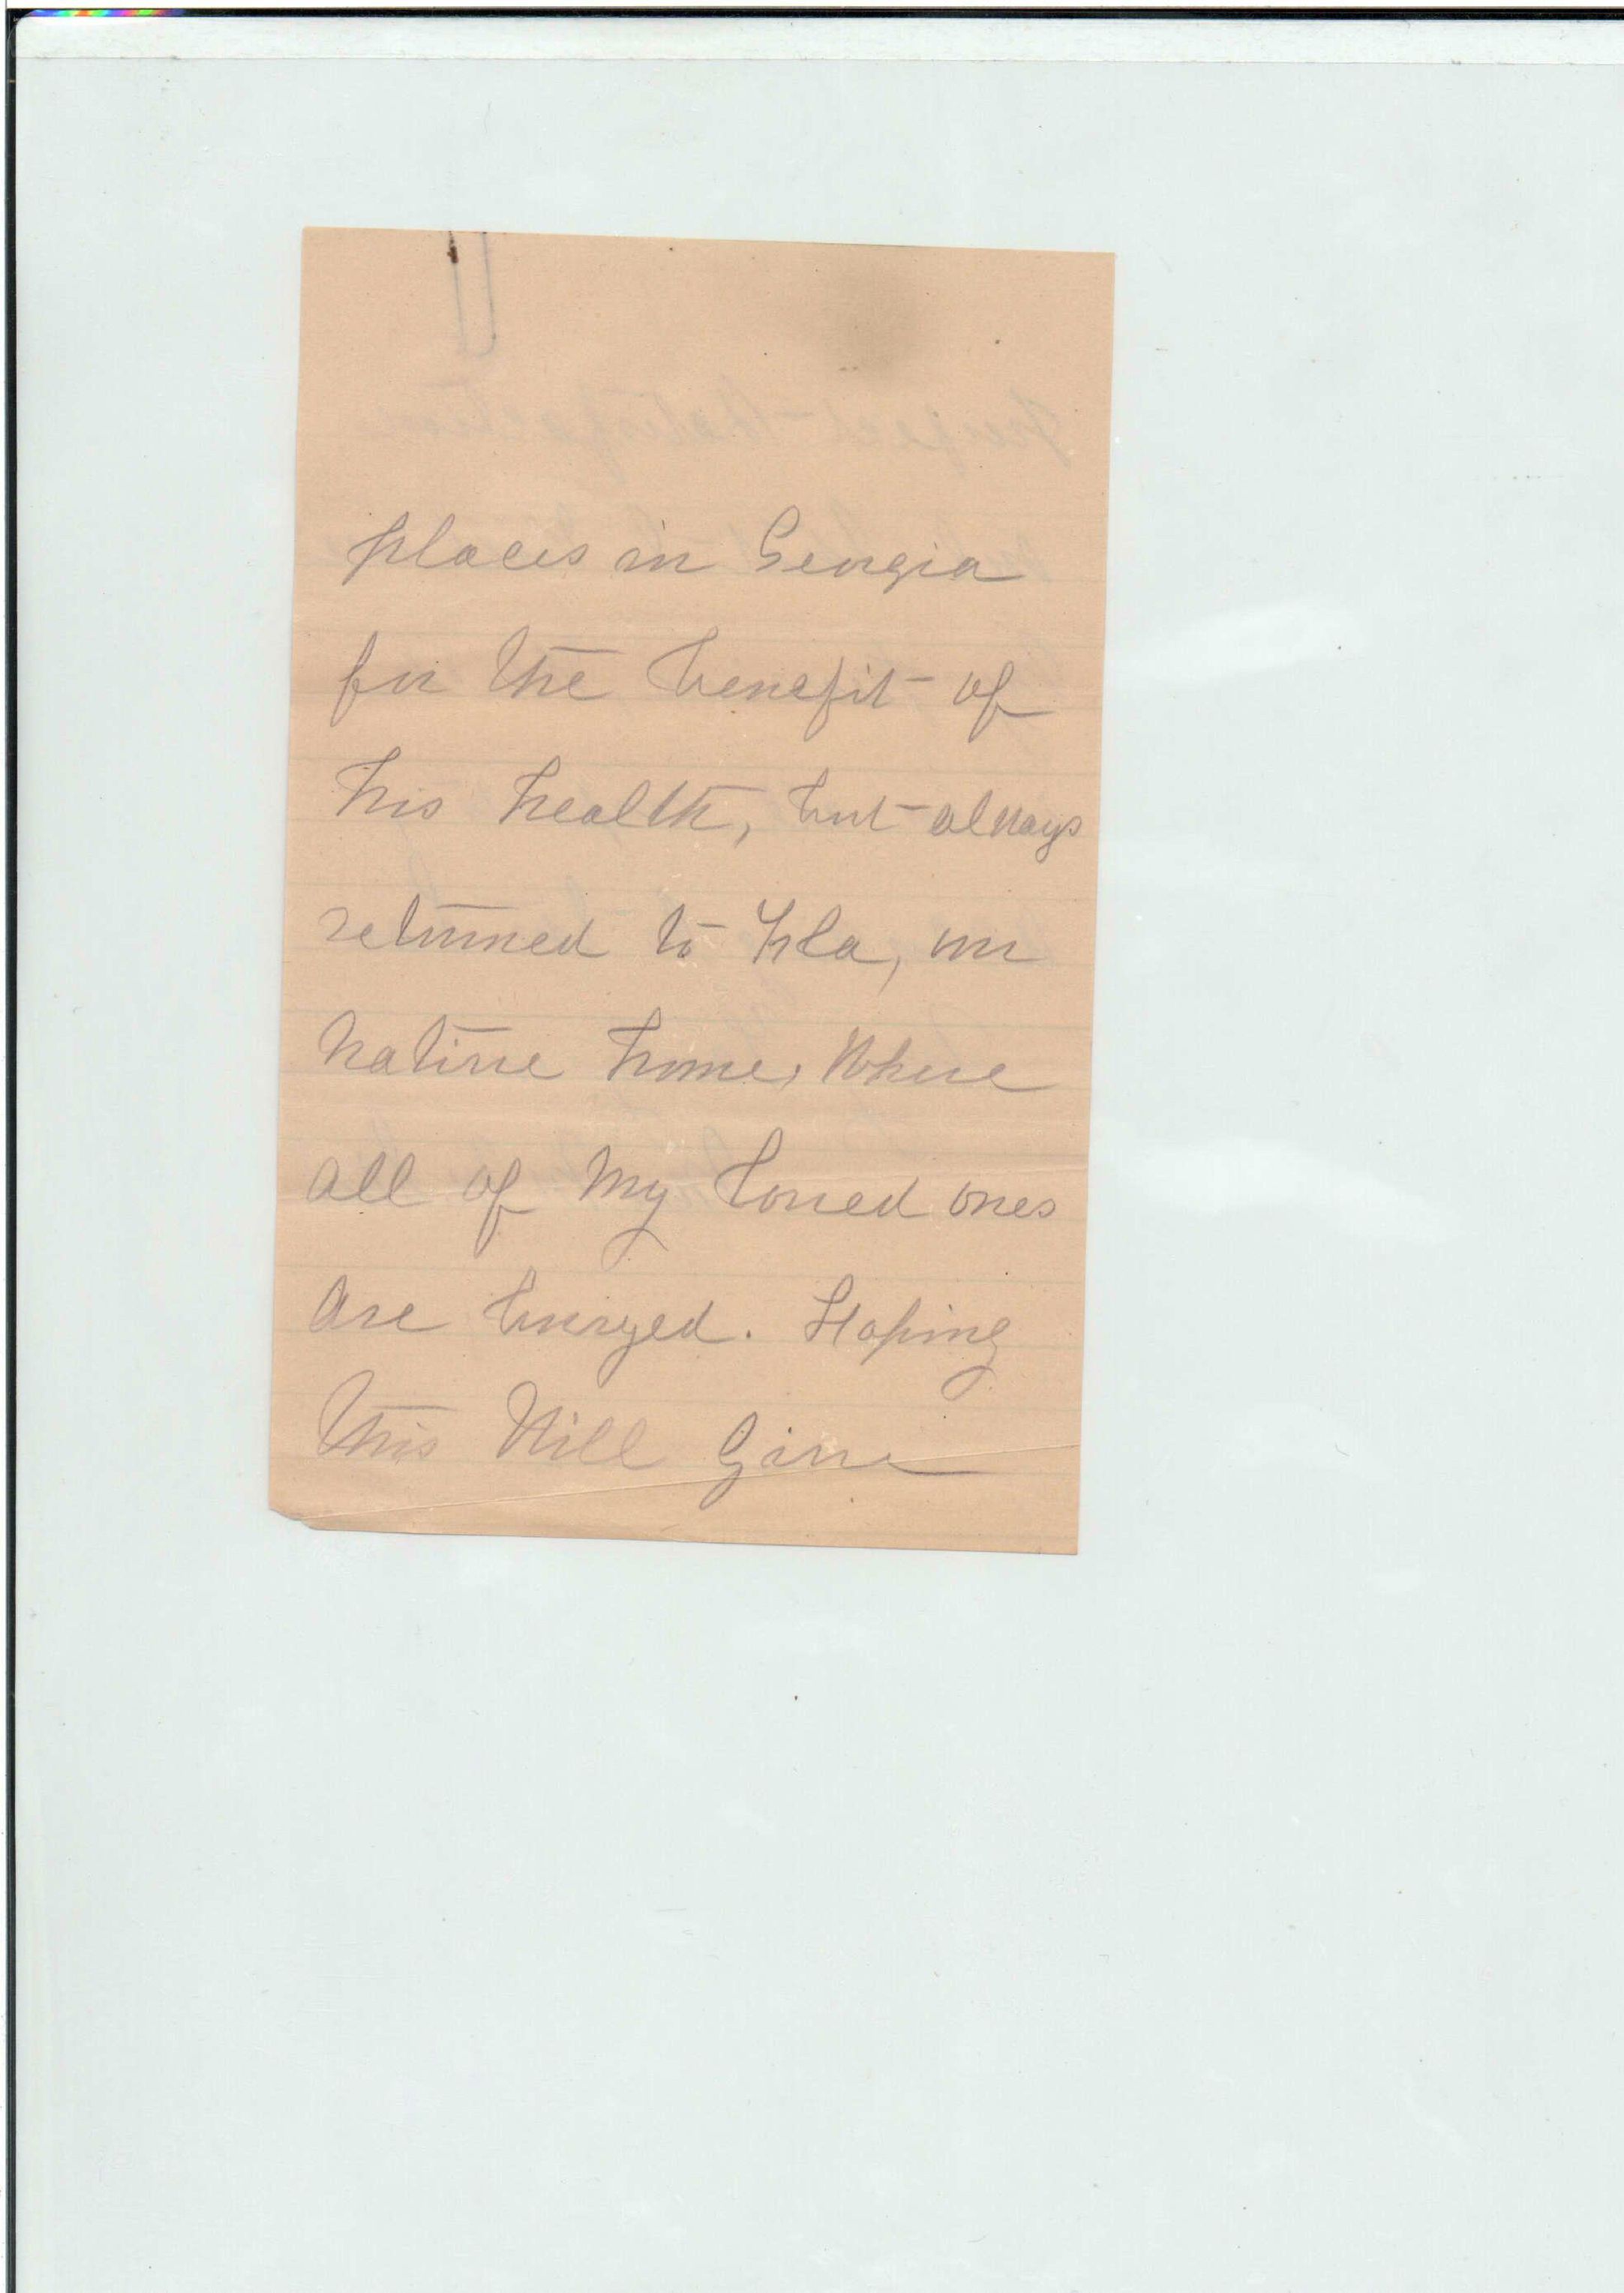 places in Georgia
for the benefit of
his health, but always
returned to Fla, our
native home, Where
all of my loved ones
are buryed. Hoping
this Will Give